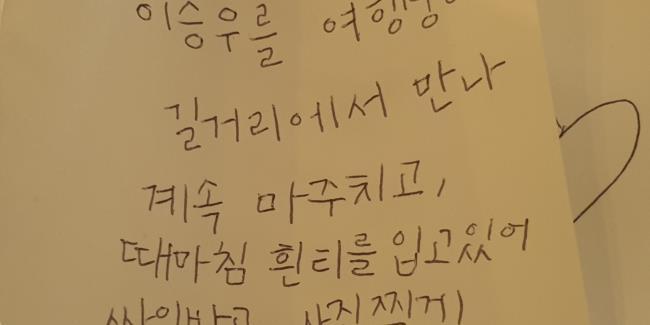 이승우를 여행중
길거리에서 만나
계속 마주치고,
때마침 흰티를 입고있어
싸인받고 사진찍기